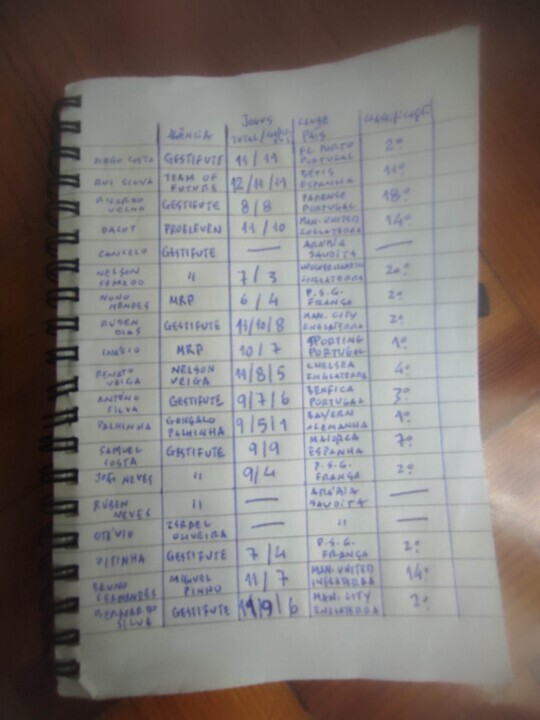 AGÊNCIA JOGOS CLUBE CLASSIFICAÇÃO
TOTAL/ PAÍS
DIOGO COSTA GESTIFUTE 11/11 FC PORTO 2º
PORTUGAL
RUI SILVA TEAM OF 12/11/11 BÉTIS 11º
FUTURE ESPANHA
RICARDO GESTIFUTE 8/8 FARENSE 18º
VELHO PORTUGAL
DALOT PROELEVEN 11/10 MAN. UNITED 14º
INGLATERRA
CANCELO GESTIFUTE — ARÁBIA —
SAUDITA
NELSON " 7/3 20º
SEMEDO INGLATERRA
NUNO MRP 6/4 P.S.G. 2º
MENDES FRANÇA
RÚBEN GESTIFUTE 11/10/8 MAN. CITY 2º
DIAS INGLATERRA
INÁCIO MRP 10/7 SPORTING 1º
PORTUGAL
RENATO NELSON 11/8/5 CHELSEA 4º
VEIGA VEIGA INGLATERRA
ANTÓNIO GESTIFUTE 9/7/6 BENFICA 3º
SILVA PORTUGAL
PALHINHA GONÇALO 9/5/1 BAYERN 1º
PALHINHA ALEMANHA
SAMUEL GESTIFUTE 9/9 MAIORCA 7º
COSTA ESPANHA
JOÃO NEVES " 9/4 P.S.G. 2º
FRANÇA
RÚBEN " — ARÁBIA —
NEVES SAUDITA
OTÁVIO ISRAEL — " —
OLIVEIRA
VITINHA GESTIFUTE 7/4 P.S.G. 2º
FRANÇA
BRUNO MIGUEL 11/7 MAN. UNITED 14º
FERNANDES PINHO INGLATERRA
BERNARDO GESTIFUTE 11/9/6 MAN. CITY 2º
SILVA INGLATERRA